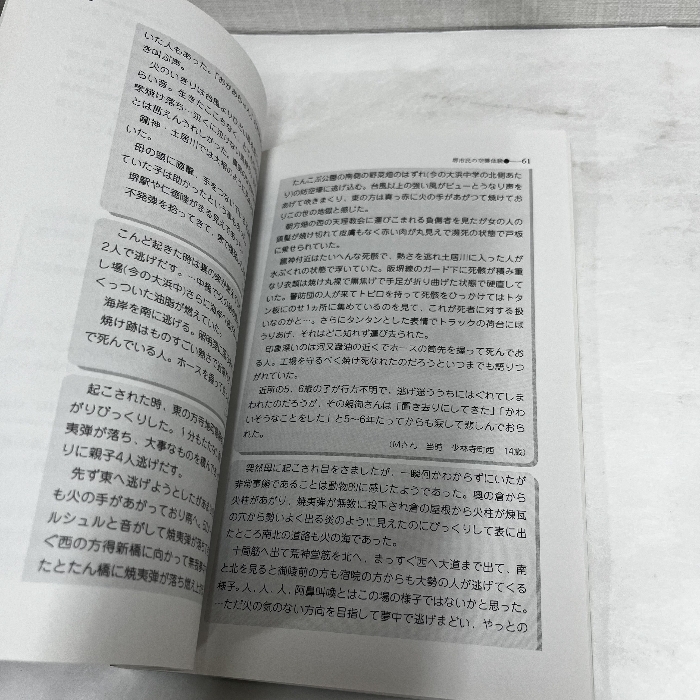 いた人もあった。「おかあちゃん
き叫ぶ声。
火のいきりは台風より
らい音。生きたここちなし
堺焼け落ち…泣くに泣け
とは思えんうれしかった。
龍神・土居川では火傷の
いた。
母の頭に直撃、手をつない
ていた子は助かったという
堺駅や仁徳陵がまる見えで
不発弾を拾ってきて、家で
こんど起きた時は裏の家が
2人で逃げだす。…中橋で
し場(今の大浜中)さらに海岸
くっついた油脂が燃えていた。
海岸を南に逃げる。
焼け跡はものすごい熱さで
で死んでいる人。ホースを持って
起こされた時、東の方
がりびっくりした。1分もたたない
夷弾が落ち、大事なものを積んで
りに親子4人逃げだす。
先ず東へ逃げようとしたが
も火の手があがっており南へ。
ルシュルと音がして焼夷弾が落ち
ぐ西の方得新橋に向かって
たとたん橋に焼夷弾が落ち燃え上
堺市民の空襲体験●──61
たんこぶ公園の南側の野菜畑のはずれ(今の大浜中学の北側あた
り)の防空壕に逃げ込む。台風以上の強い風がビューとうなり声を
あげて吹きまくり、東の方は真っ赤に火の手があがって焼けてお
りこの世の地獄と感じた。
朝方畑の西の天理教会に運びこまれる負傷者を見たが女の人の
頭髪が焼け切れて皮膚もなく赤い肉が丸見えで瀕死の状態で戸板
に乗せられていた。
龍神付近はたいへんな死骸で、熱さを逃れ土居川に入った人が
水ぶくれの状態で浮いていた。阪堺線のガード下に死骸が積み重
なり衣類は焼け丸裸で黒焦げで手足が折り曲げた状態で硬直して
いた。警防団の人が来てトビ口を持って死骸をひっかけてはトタ
ン板にのせ1ヵ所に集めているのを見て、これが死者に対する扱
いなのかと…。さらにタンタンとした表情でトラックの荷台にほ
うりあげ、それはどこ知れず運び去られた。
印象深いのは河又醤油の近くでホースの筒先を握って死んでお
る人。工場を守るべく焼け死なれたのだろうといつまでも語りつ
がれていた。
近所の5、6歳の子が行方不明で、逃げ迷ううちにはぐれてしま
われたのだろうが、その親御さんは「置き去りにしてきた」「かわ
いそうなことをした」と5〜6年たってからも寂して悲しんでおら
れた。
(Mさん 当時 少林寺町西 14歳)
突然母に起こされ目をさましたが、一瞬何かわからずにいたが
非常事態であることは動物的に感じたようであった。奥の倉から
火柱があがり、焼夷弾が無数に投下され倉の屋根から火柱が煉瓦
の穴から勢いよく出る炎のように見えたのにびっくりして表に出
たところ南北の道路も火の海であった。
十間筋へ出て荒神堂筋を北へ、まっすぐ西へ大道まで出て、南
と北を見ると御陵前の方も宿院の方からも大勢の人が逃げてくる
様子。人、人、人、阿鼻叫喚とはこの場の様子ではないかと思った。
…ただ火の気のない方向を目指して夢中で逃げまどい、やっとの